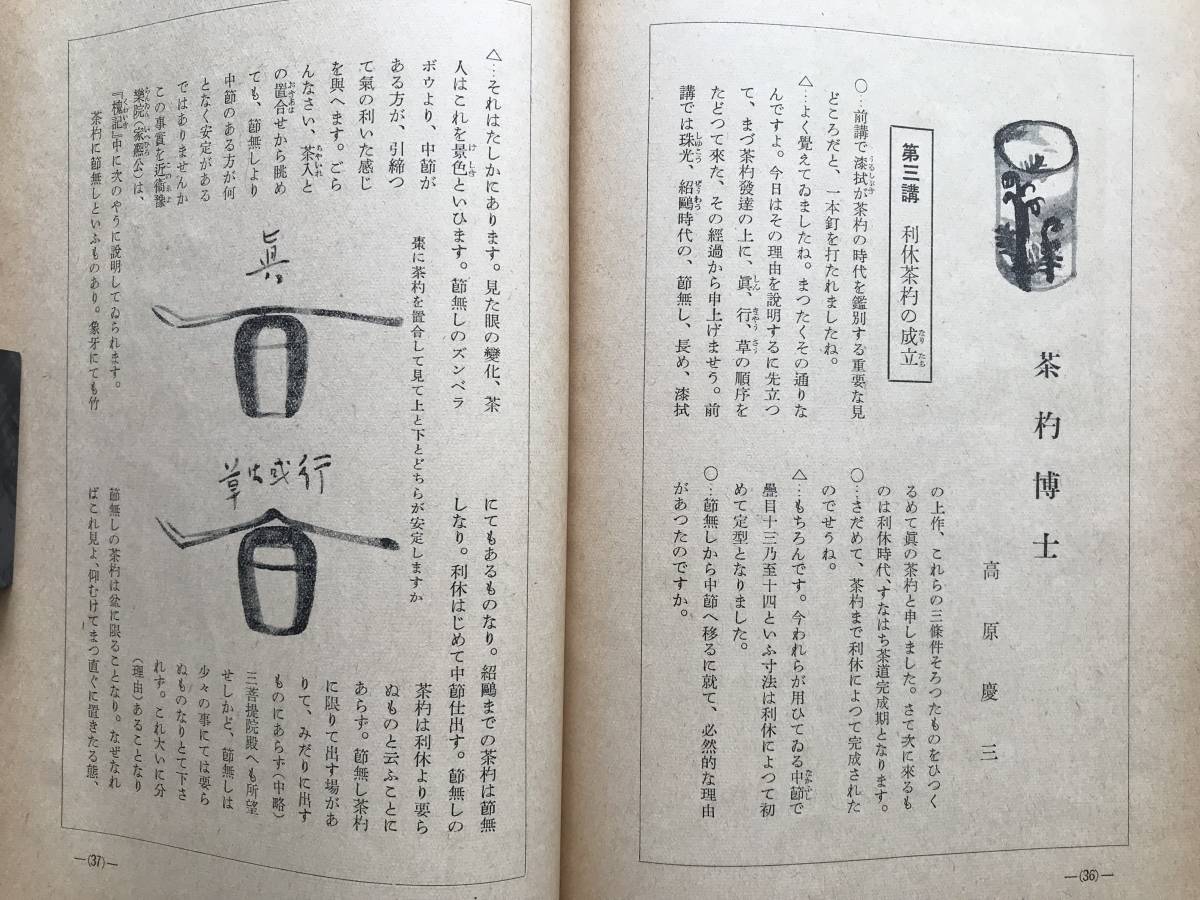 茶杓博士
高原慶三
第三講　利休茶杓の成立
○…前講で漆拭が茶杓の時代を鑑別する重要な見
どころだと、一本釘を打たれましたね。
△…よく覺えてゐましたね。まつたくその通りな
んですよ。今日はその理由を説明するに先立つ
て、まづ茶杓發達の上に、眞、行、草の順序を
たどつて來た、その經過から申上げませう。前
講では珠光、紹鷗時代の、節無し、長め、漆拭
の上作、これらの三條件そろつたものをひつく
るめて眞の茶杓と申しました。さて次に來るも
のは利休時代、すなはち茶道完成期となります。
○…さだめて、茶杓まで利休によつて完成された
のでせうね。
△…もちろんです。今われらが用ひてゐる中節で
疊目十三乃至十四といふ寸法は利休によつて初
めて定型となりました。
○…節無しから中節へ移るに就て、必然的な理由
があつたのですか。
—(36)—
△…それはたしかにあります。見た眼の變化、茶
人はこれを景色といひます。節無しのズンベラ
ボウより、中節が
ある方が、引締つ
て氣の利いた感じ
を與へます。ごら
んなさい、茶入と
の置合せから眺め
ても、節無しより
中節のある方が何
となく安定がある
ではありませんか
この事實を近衞豫
樂院（家熈公）は、
『槐記』中に次のやうに説明してゐられます。
茶杓に節無しといふものあり。象牙にても竹
棗に茶杓を置合して見て上と下とどちらが安定しますか
眞
行或は草
にてもあるものなり。紹鷗までの茶杓は節無
しなり。利休はじめて中節仕出す。節無しの
茶杓は利休より要ら
ぬものと云ふことに
あらず。節無し茶杓
に限りて出す場があ
りて、みだりに出す
ものにあらず（中略）
三菩提院殿へも所望
せしかど、節無しは
少々の事にては要ら
ぬものなりとて下さ
れず。これ大いに分
（理由）あることなり
節無しの茶杓は盆に限ることなり。なぜなれ
ばこれ見よ、仰むけてまつ直ぐに置きたる態、
—(37)—